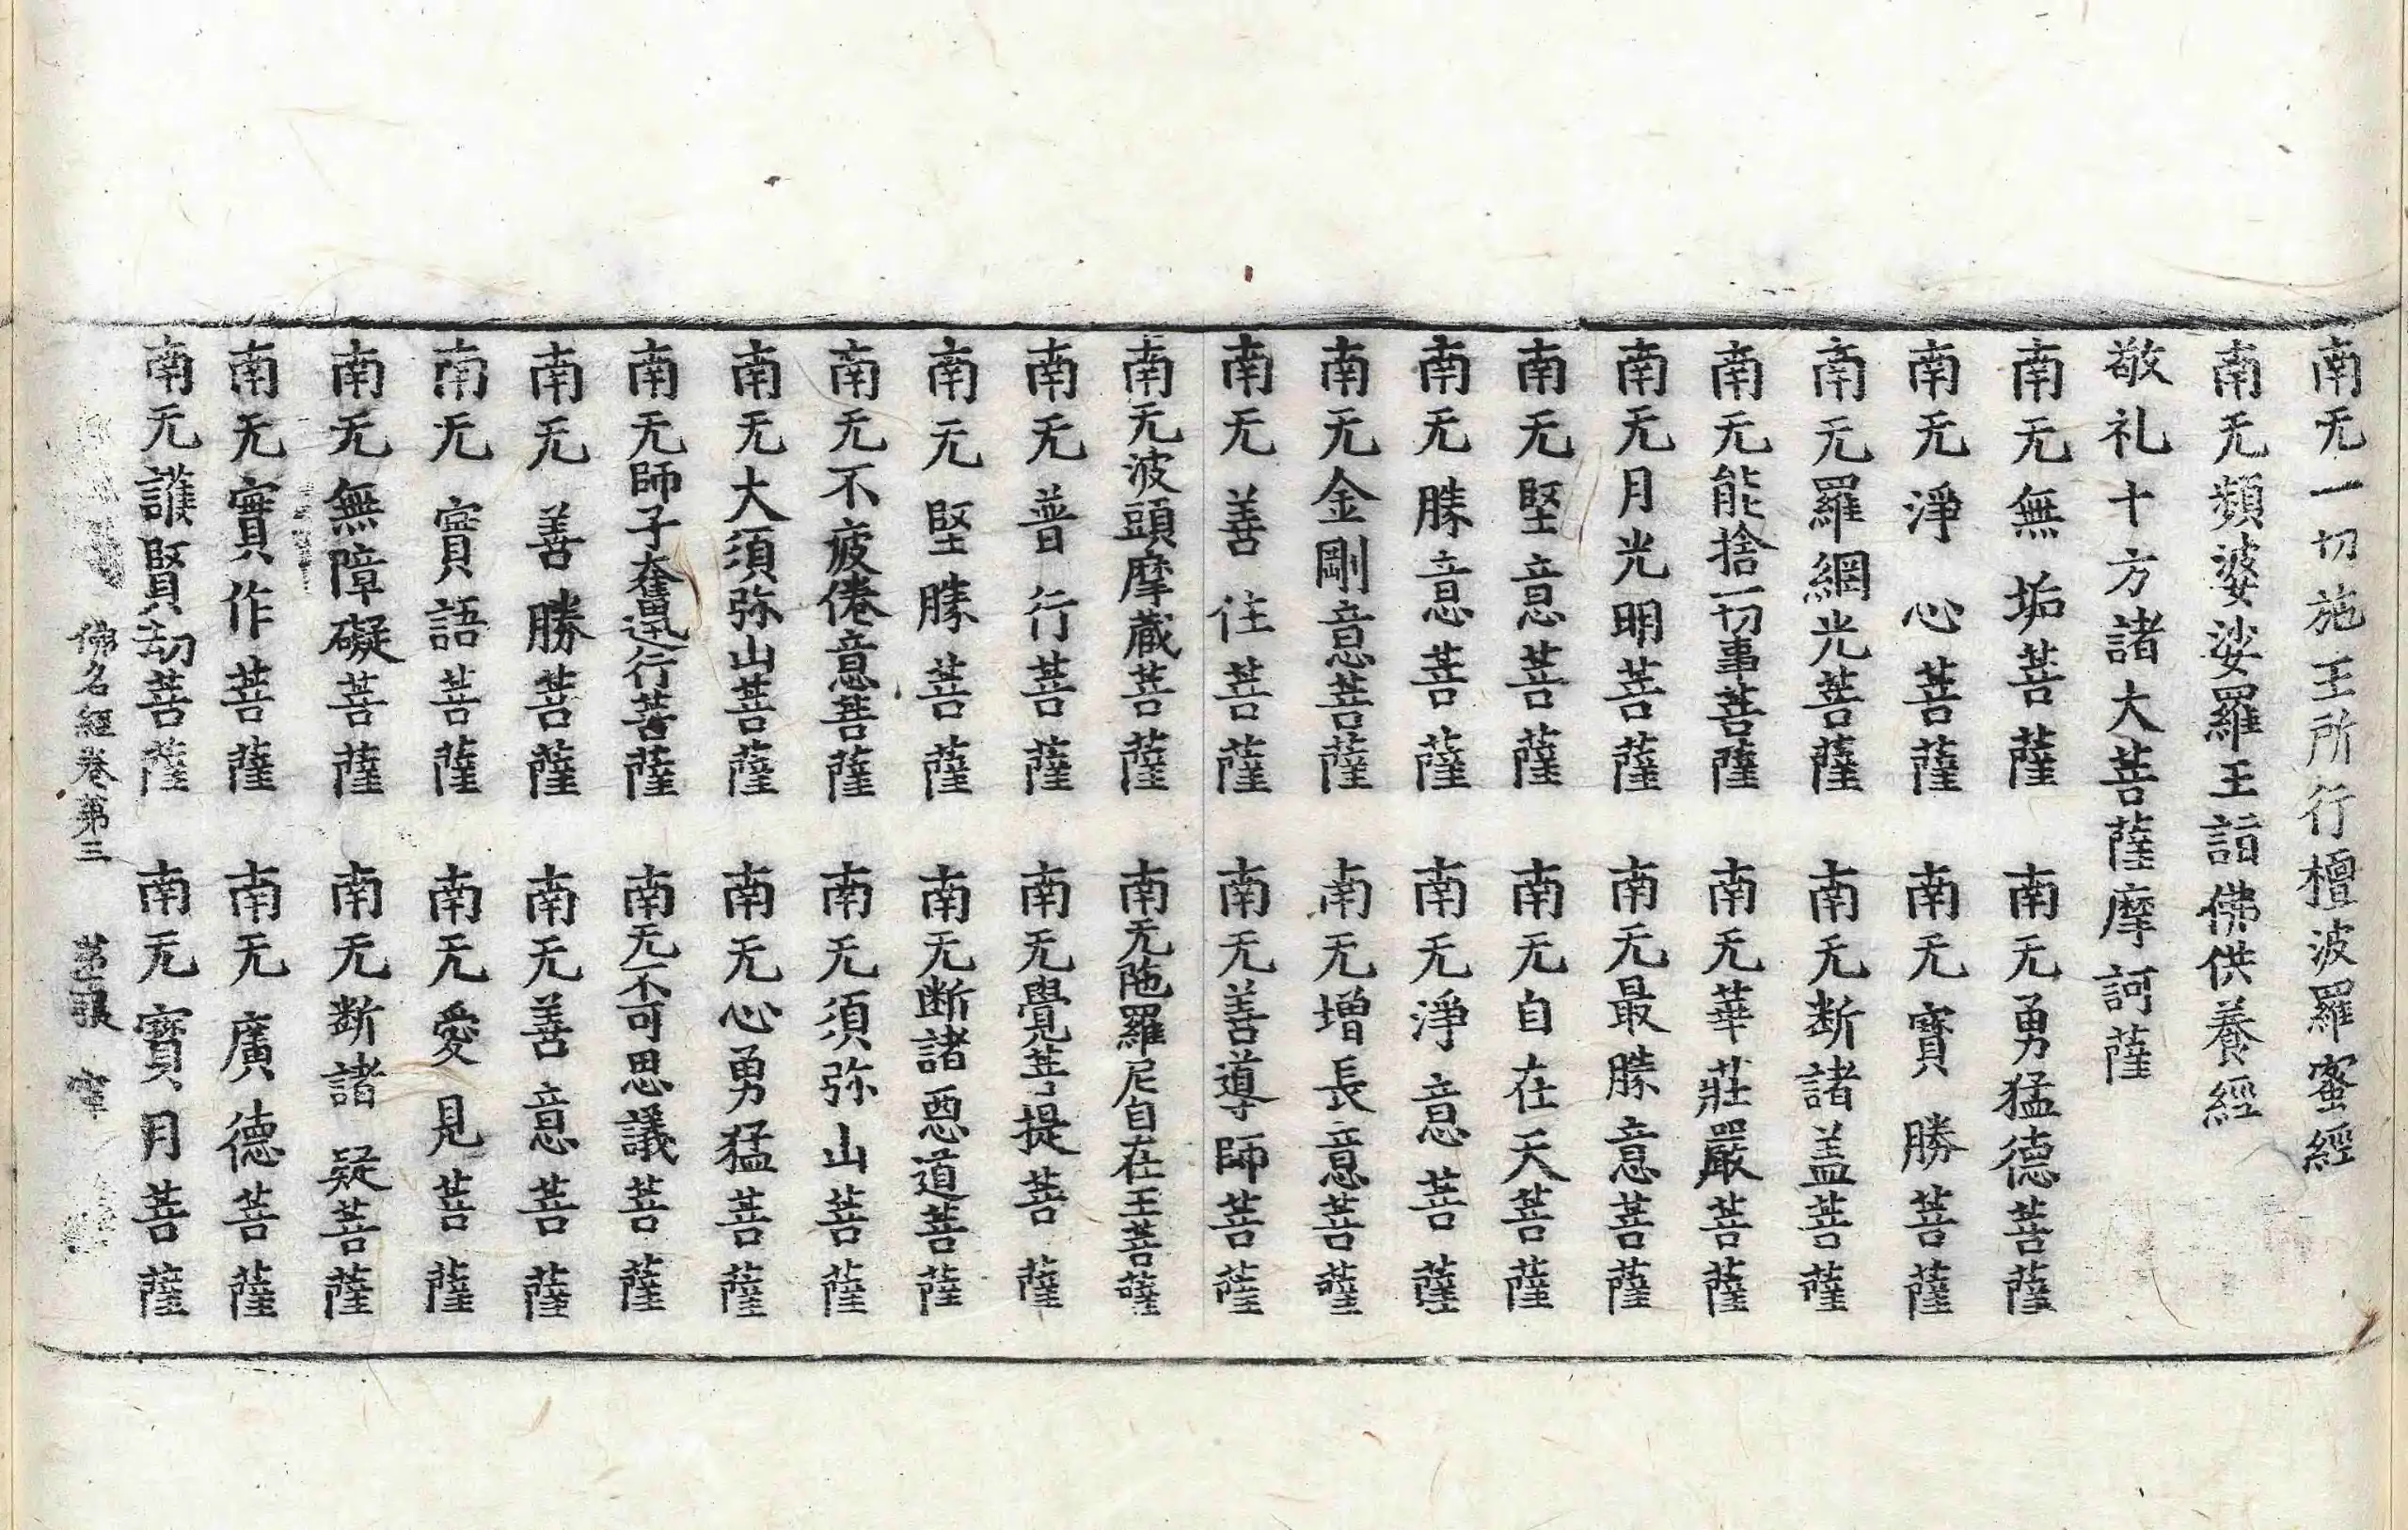 南无一切施王所行檀波羅蜜經
南无頻婆娑羅王詣佛供養經
敬礼十方諸大菩薩摩訶薩
南无無垢菩薩　南无勇猛德菩薩
南无淨心菩薩　南无寶勝菩薩
南无羅網光菩薩　南无断諸盖菩薩
南无能捨一切事菩薩　南无華莊嚴菩薩
南无月光明菩薩　南无最勝意菩薩
南无堅意菩薩　南无自在天菩薩
南无勝意菩薩　南无淨意菩薩
南无金剛意菩薩　南无增長意菩薩
南无善住菩薩　南无善導師菩薩
南无波頭摩藏菩薩　南无陁羅尼自在王菩薩
南无普行菩薩　南无覺菩提菩薩
南无堅勝菩薩　南无断諸惡道菩薩
南无不疲倦意菩薩　南无須弥山菩薩
南无大須弥山菩薩　南无心勇猛菩薩
南无師子奮迅行菩薩　南无不可思議菩薩
南无善勝菩薩　南无善意菩薩
南无實語菩薩　南无愛見菩薩
南无無障礙菩薩　南无断諸疑菩薩
南无實作菩薩　南无廣德菩薩
南无護賢劫菩薩　南无寶月菩薩
佛名經卷第三　第二張